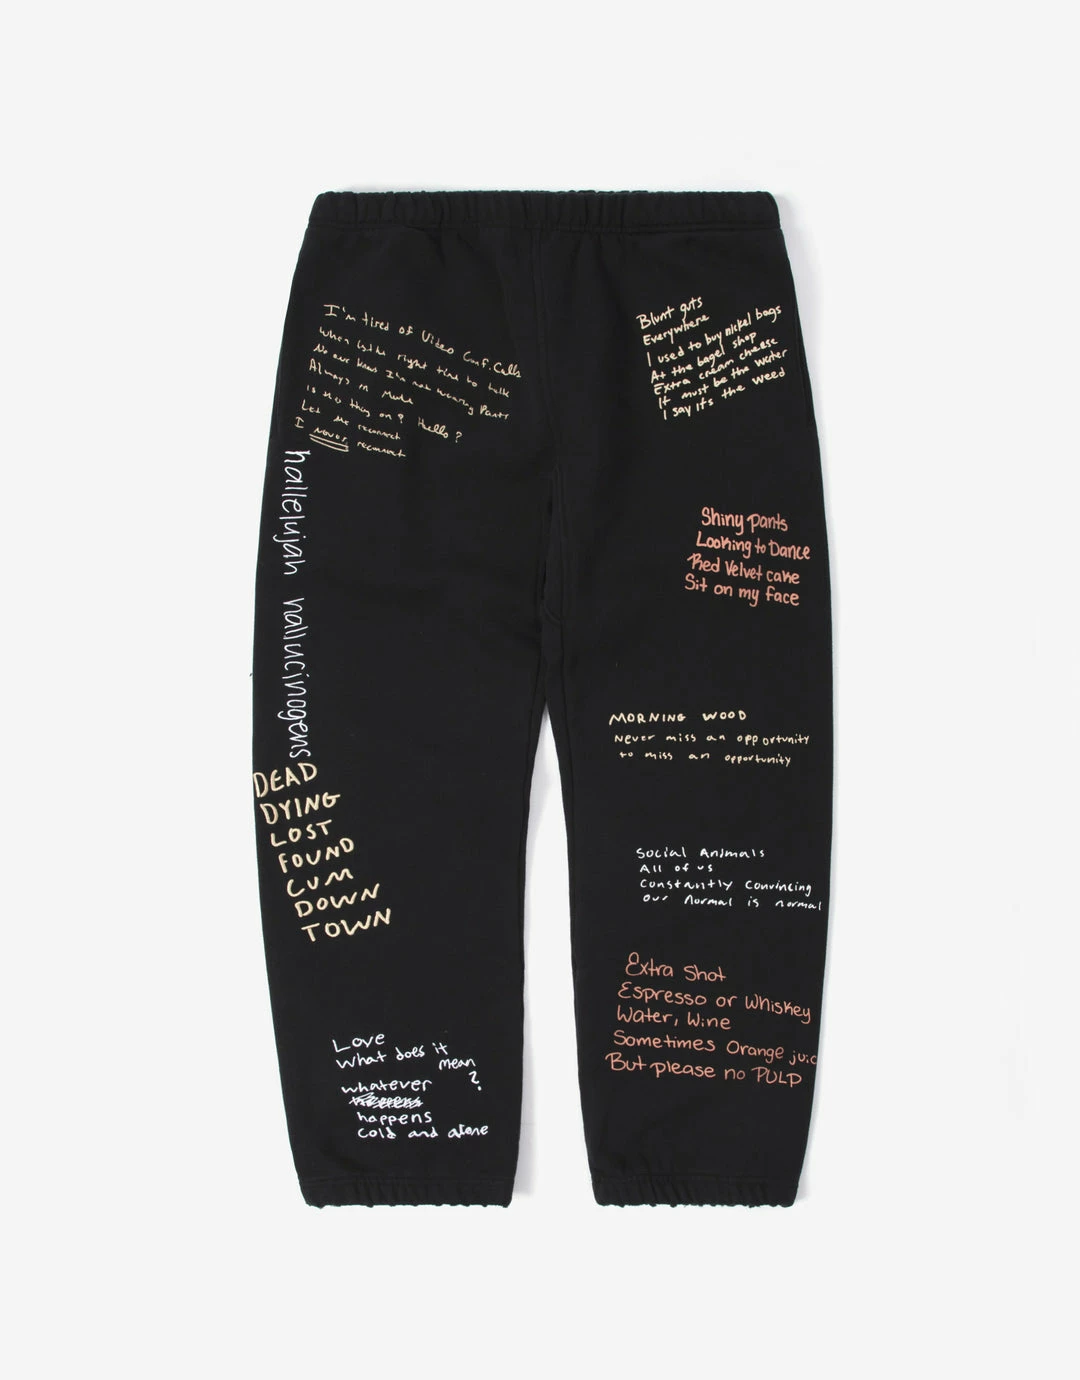 I'm tired of Video Conf. Calls
When is the right time to talk
No one knows I'm not wearing Pants
Always on Mute
Is this thing on? Hello?
Let me reconnect
I never reconnect
hallelujah hallucinogens
DEAD
DYING
LOST
FOUND
CUM
DOWN
TOWN
Love
What does it
mean
?
whatever
happens
cold and alone
Blunt guts
Everywhere
I used to buy nickel bags
At the bagel shop
Extra cream cheese
It must be the water
I say its the weed
Shiny pants
Looking to Dance
Red Velvet cake
Sit on my face
MORNING WOOD
Never miss an opportunity
to miss an opportunity
Social Animals
All of us
Constantly Convincing
our normal is normal
Extra Shot
Espresso or Whiskey
Water, Wine
Sometimes Orange juic
But please no PULP